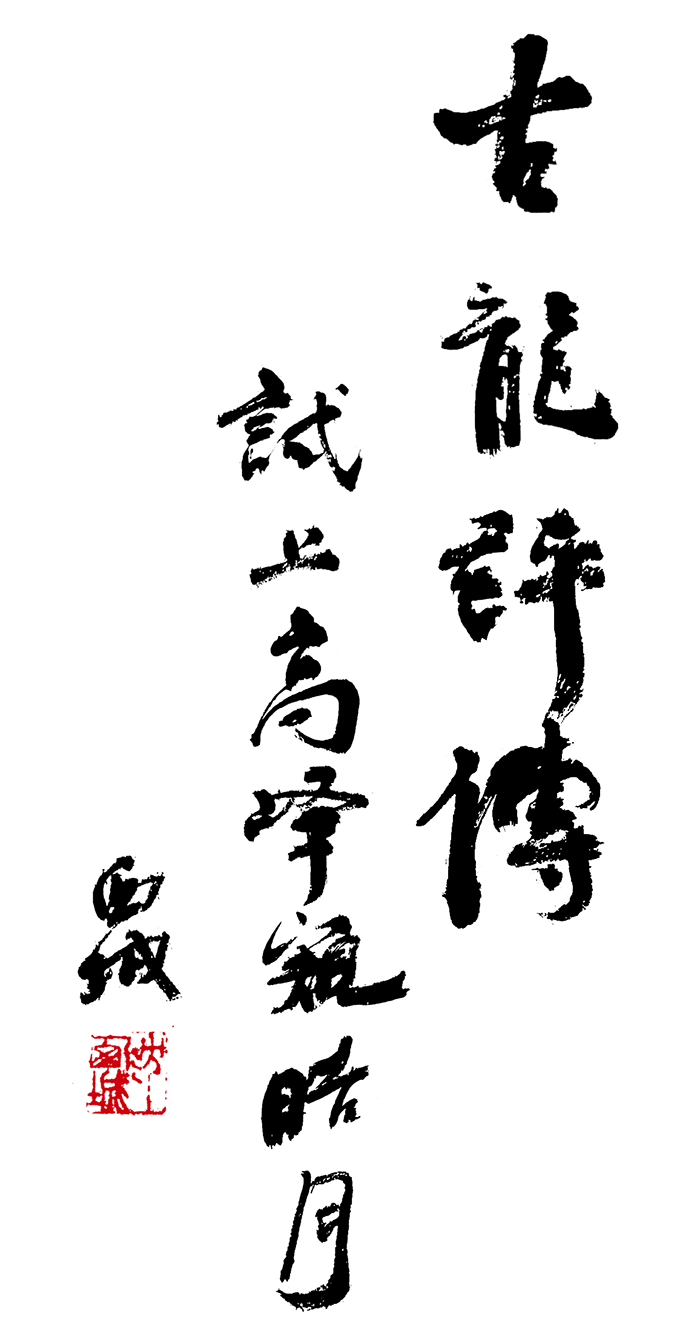 古龍評傳
試上高峰窺皓月
西城